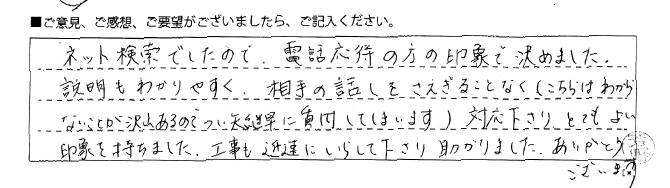 ■ご意見、ご感想、ご要望がございましたら、ご記入ください。
ネット検索でしたので、電話応待の方の印象で決めました。
説明もわかりやすく、相手の話しをさえぎることなく(こちらはわから
ないことが沢山あるのでつい矢継早に質問してしまいます)対応下さり とてもよい
印象を持ちました。工事も迅速にいらして下さり助かりました。ありがとう
ございます